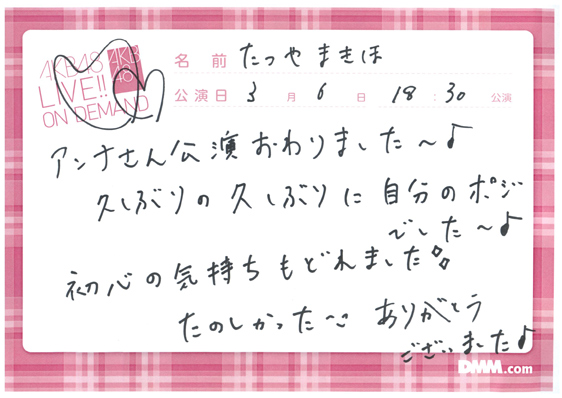 AKB48
LIVE!!
ON DEMAND
AKB
48
名前 たつやまきほ
公演日 3月6日 18:30 公演
アンナさん公演おわりました〜♪
久しぶりの久しぶりに自分のポジ
でした〜♪
初心の気持ちもどれました
たのしかった〜 ありがとう
ございました♪
DMM.com